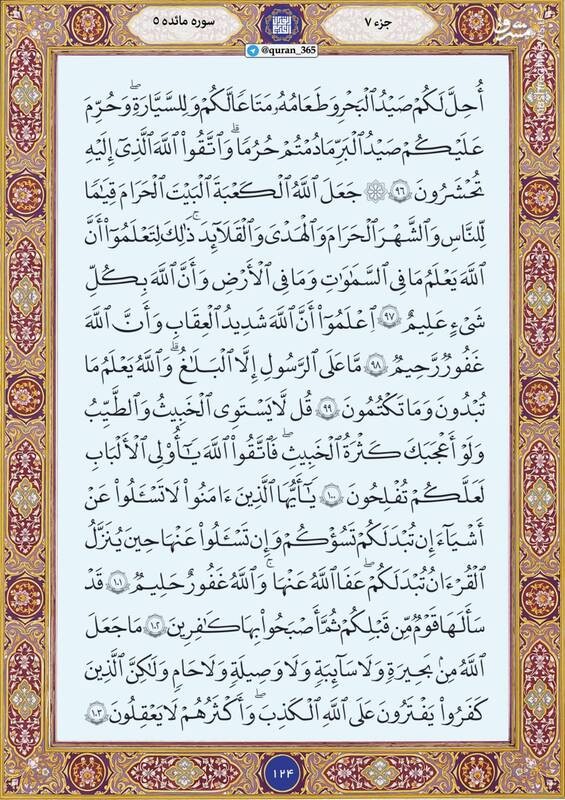 جزء ۷
سوره مائده ۵
@quran_365
أُحِلَّ لَكُمْ صَيْدُ ٱلْبَحْرِ وَطَعَامُهُۥ مَتَٰعًا لَّكُمْ وَلِلسَّيَّارَةِۖ وَحُرِّمَ
عَلَيْكُمْ صَيْدُ ٱلْبَرِّ مَا دُمْتُمْ حُرُمًاۗ وَٱتَّقُوا۟ ٱللَّهَ ٱلَّذِىٓ إِلَيْهِ
تُحْشَرُونَ ٩٦ ۞ جَعَلَ ٱللَّهُ ٱلْكَعْبَةَ ٱلْبَيْتَ ٱلْحَرَامَ قِيَٰمًا
لِّلنَّاسِ وَٱلشَّهْرَ ٱلْحَرَامَ وَٱلْهَدْىَ وَٱلْقَلَٰٓئِدَۚ ذَٰلِكَ لِتَعْلَمُوٓا۟ أَنَّ
ٱللَّهَ يَعْلَمُ مَا فِى ٱلسَّمَٰوَٰتِ وَمَا فِى ٱلْأَرْضِ وَأَنَّ ٱللَّهَ بِكُلِّ
شَىْءٍ عَلِيمٌ ٩٧ ٱعْلَمُوٓا۟ أَنَّ ٱللَّهَ شَدِيدُ ٱلْعِقَابِ وَأَنَّ ٱللَّهَ
غَفُورٌ رَّحِيمٌ ٩٨ مَّا عَلَى ٱلرَّسُولِ إِلَّا ٱلْبَلَٰغُۗ وَٱللَّهُ يَعْلَمُ مَا
تُبْدُونَ وَمَا تَكْتُمُونَ ٩٩ قُل لَّا يَسْتَوِى ٱلْخَبِيثُ وَٱلطَّيِّبُ
وَلَوْ أَعْجَبَكَ كَثْرَةُ ٱلْخَبِيثِۚ فَٱتَّقُوا۟ ٱللَّهَ يَٰٓأُو۟لِى ٱلْأَلْبَٰبِ
لَعَلَّكُمْ تُفْلِحُونَ ١٠٠ يَٰٓأَيُّهَا ٱلَّذِينَ ءَامَنُوا۟ لَا تَسْـَٔلُوا۟ عَنْ
أَشْيَآءَ إِن تُبْدَ لَكُمْ تَسُؤْكُمْ وَإِن تَسْـَٔلُوا۟ عَنْهَا حِينَ يُنَزَّلُ
ٱلْقُرْءَانُ تُبْدَ لَكُمْ عَفَا ٱللَّهُ عَنْهَاۗ وَٱللَّهُ غَفُورٌ حَلِيمٌ ١٠١ قَدْ
سَأَلَهَا قَوْمٌ مِّن قَبْلِكُمْ ثُمَّ أَصْبَحُوا۟ بِهَا كَٰفِرِينَ ١٠٢ مَا جَعَلَ
ٱللَّهُ مِنۢ بَحِيرَةٍ وَلَا سَآئِبَةٍ وَلَا وَصِيلَةٍ وَلَا حَامٍۙ وَلَٰكِنَّ ٱلَّذِينَ
كَفَرُوا۟ يَفْتَرُونَ عَلَى ٱللَّهِ ٱلْكَذِبَۖ وَأَكْثَرُهُمْ لَا يَعْقِلُونَ ١٠٣
۱۲۴